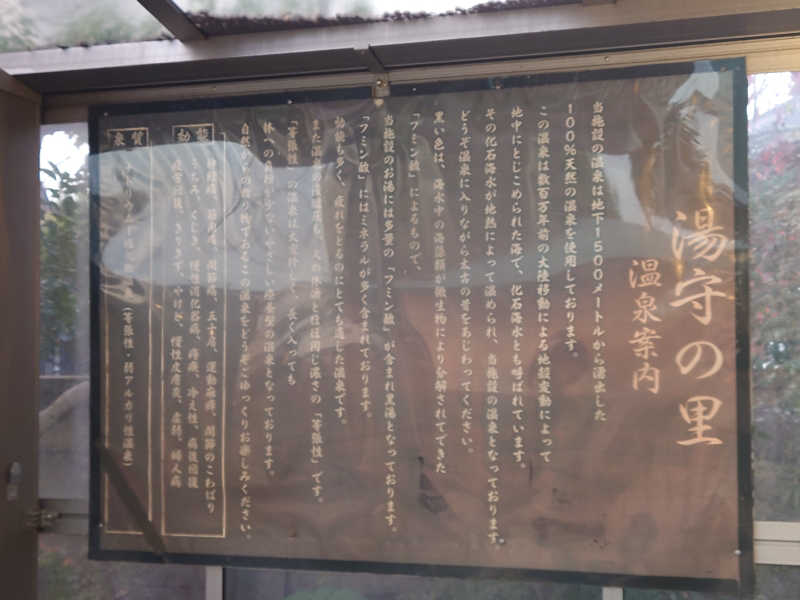 湯守の里
温泉案内
当施設の温泉は地下1500メートルから湧出した
100%天然の温泉を使用しております。
この温泉は数百万年前の大陸移動による地殻変動によって
地中にとじこめられた海で、化石海水とも呼ばれています。
その化石海水が地熱によって温められ、当施設の温泉となっております。
どうぞ温泉に入りながら太古の昔をあじわってください。
黒い色は、海水中の海藻類が微生物により分解されてできた
「フミン酸」によるもので、
当施設のお湯には多量の「フミン酸」が含まれ黒湯となっております。
「フミン酸」にはミネラルが多く含まれております。
効能も多く、疲れをとるのにとても適した温泉です。
また
ほぼ同じ濃さの「等張性」です。
「等張性」の温泉は
長く入っても
体への負担が少ないやさしい
の温泉となっております。
自然からの贈り物であるこの温泉をどうぞごゆっくりお楽しみください。
効能
神経痛、筋肉痛、関節痛、五十肩、運動麻痺、関節のこわばり
うちみ、くじき、慢性消化器病、痔疾、冷え性、病後回復
疲労回復、きりきず、やけど、慢性皮膚病、虚弱、婦人病
泉質
(等張性・弱アルカリ性温泉)